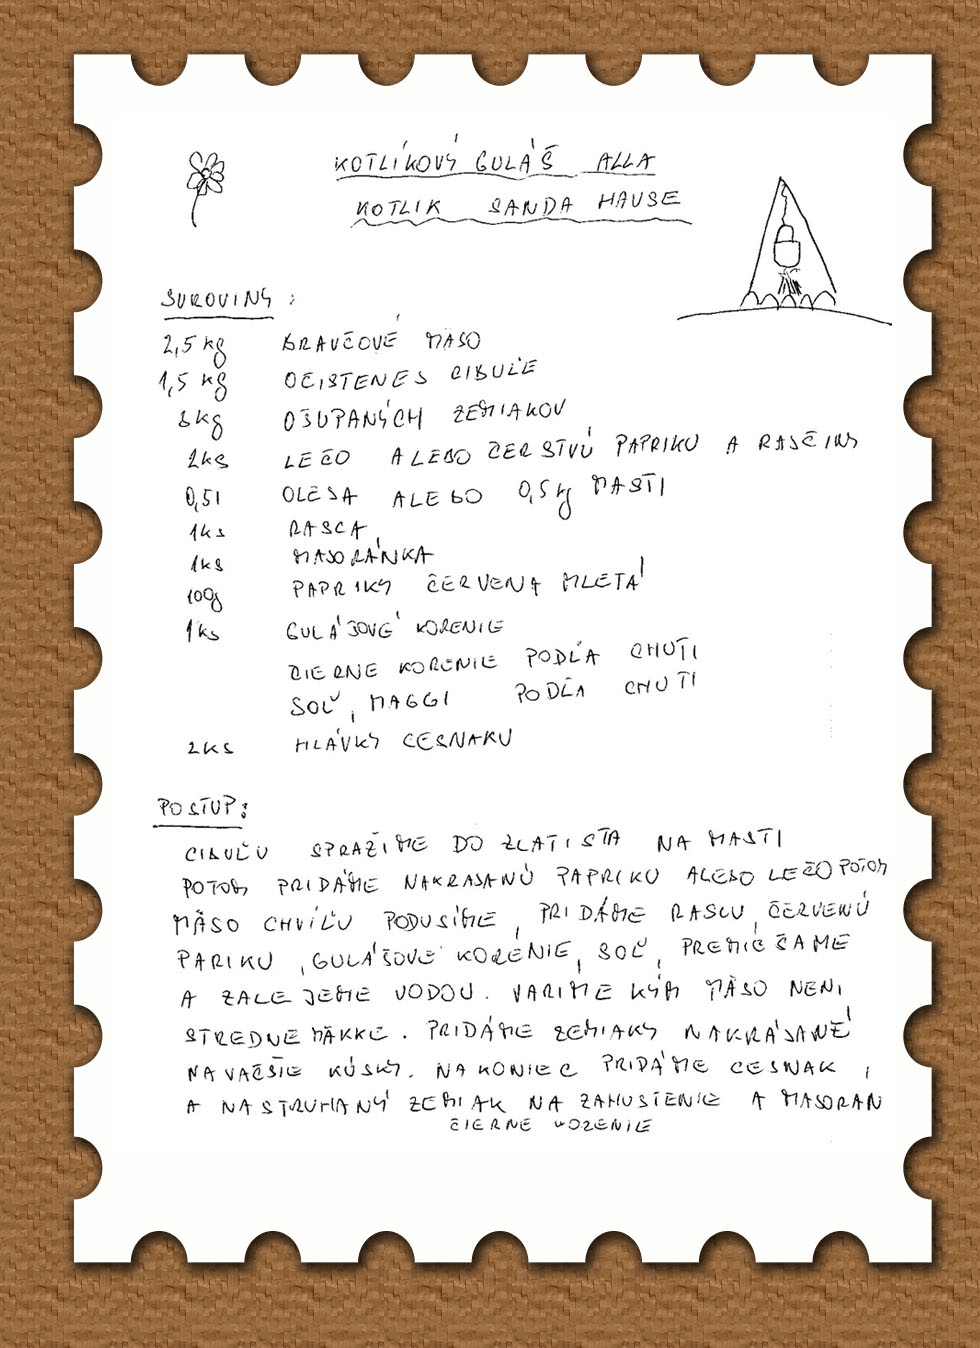 KOTLÍKOVÝ GULÁŠ ALLA
KOTLIK SANDA HAUSE
SUROVINY :
2,5 kg BRAVČOVÉ MÄSO
1,5 kg OČISTENEJ CIBUĽE
3kg OŠUPANÝCH ZEMIAKOV
2ks LEČO ALEBO ČERSTVÚ PAPRIKU A RAJČINY
0,5l OLEJA ALEBO 0,5kg MASTI
1ks RASCA
1ks MAJORÁNKA
100g PAPRIKY ČERVENA MLETÁ
1ks GULÁŠOVÉ KORENIE
ČIERNE KORENIE PODĽA CHUTI
SOĽ, MAGGI PODĽA CHUTI
2KS HLÁVKY CESNAKU
POSTUP:
CIBUĽU SPRAŽÍME DO ZLATISTA NA MASTI
POTOM PRIDÁME NAKRAJANÚ PAPRIKU ALEBO LEČO POTOM
MÄSO CHVÍĽU PODUSÍME, PRIDÁME RASCU, ČERVENÚ
PARIKU, GULÁŠOVÉ KORÉNIE, SOĽ, PREMIEŠAME
A ZALEJEME VODOU. VARIME KÝM MÄSO NENI
STREDNE MÄKKÉ. PRIDÁME ZEMIAKY NAKRÁJANÉ
NA VAČŠIE KÚSKY. NAKONIEC PRIDÁME CESNAK,
A NASTRUHANÝ ZEMIAK NA ZAHUSTENIE A MAJORAN
ČIERNE KORENIE